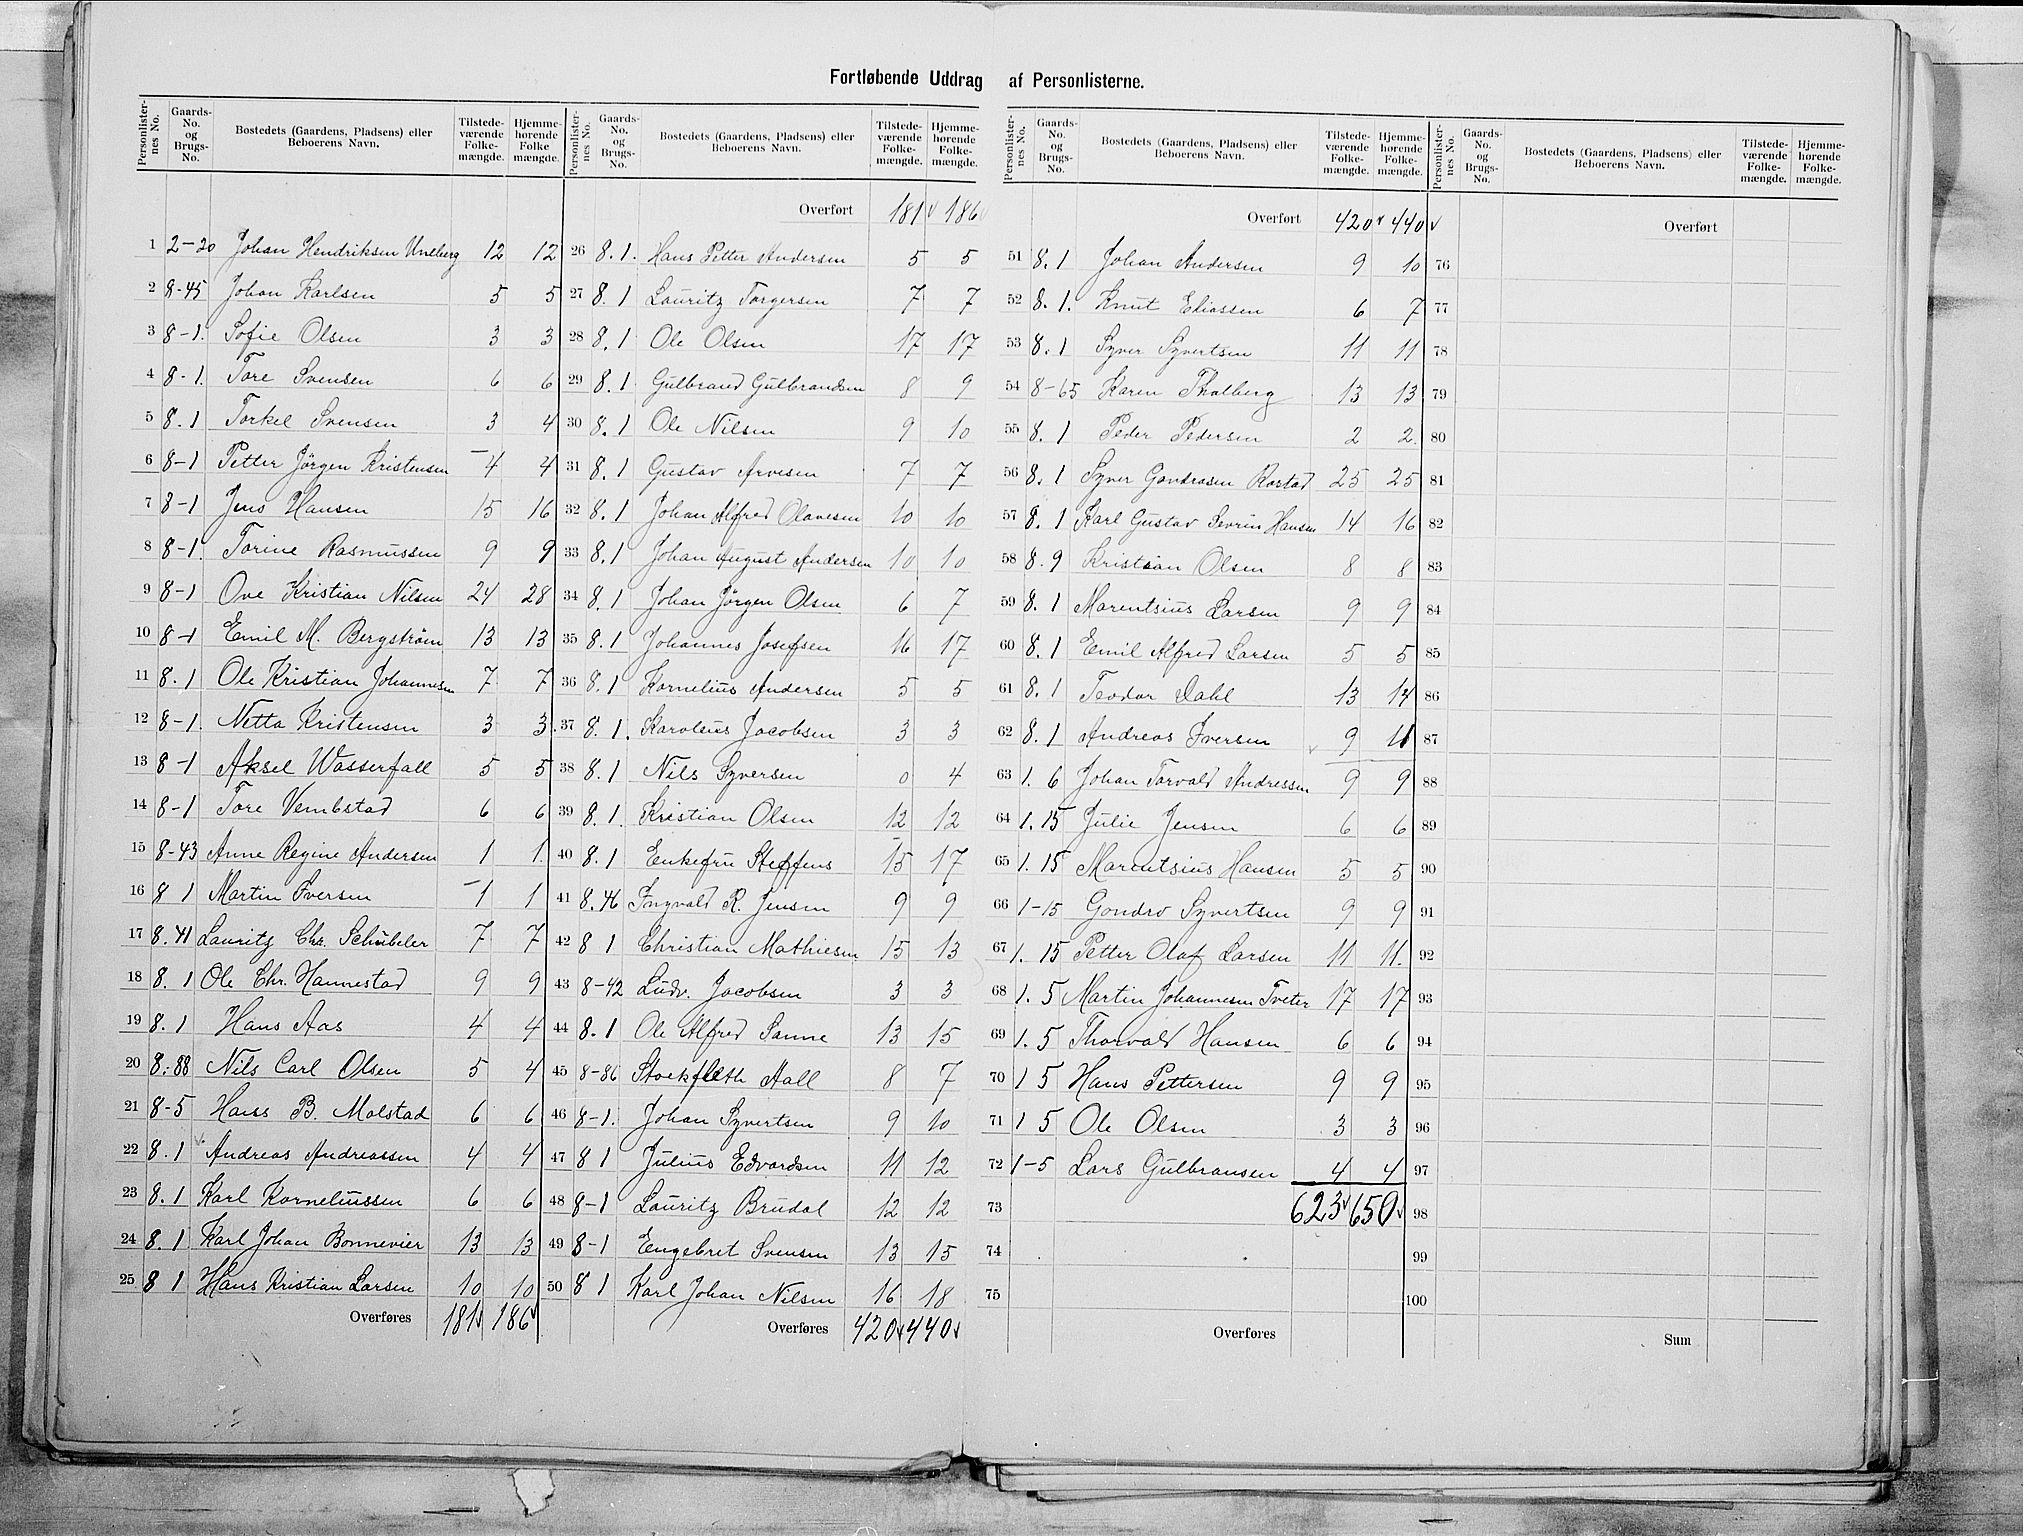 Fortløbende Uddrag af Personlisterne.
Personlisternes No. Gaards-No. og Brugs-No. Bostedets (Gaardens, Pladsens) eller Beboerens Navn. Tilstedeværende Folkemængde. Hjemmehørende Folkemængde.
1 2-20 Johan Hendriksen 12 12
2 8-45 Johan Karlsen 5 5
3 8-1. Sofie Olsen 3 3
4 8-1. Tore Svensen 6 6
5 8.1 Torkel Svensen 3 4
6 8-1 Petter Jörgen Kristensen 4 4
7 8-1 Jens Hansen 15 16
8 8-1. Torine Rasmussen 9 9
9 8-1 Ove Kristian Nilsen 24 28
10 8-1 Emil M. Bergström 13 13
11 8.1 Ole Kristian Johannesen 7 7
12 8-1. Netta Kristensen 3 3
13 8-1 Aksel Wasserfall 5 5
14 8-1 Tore Vembstad 6 6
15 8-43 Anne Regine Andersen 1 1
16 8 1 Martin Iversen 1 1
17 8.41 Lauritz Chr. Schübeler 7 7
18 8.1 Ole Chr. Hannestad 9 9
19 8.1 Hans Aas 4 4
20 8.88 Nils Carl Olsen 5 4
21 8-5 Hans B. Molstad 6 6
22 8.1 Andreas Andreassen 4 4
23 8.1 Karl Korneliussen 6 6
24 8.1 Karl Johan Bonnevier 13 13
25 8 1 Hans Kristian Larsen 10 10
Overføres 181 186
Personlisternes No. Gaards-No. og Brugs-No. Bostedets (Gaardens, Pladsens) eller Beboerens Navn. Tilstedeværende Folkemængde. Hjemmehørende Folkemængde.
Overført 181 186
26 8.1. Hans Petter Andersen 5 5
27 8.1 Lauritz Torgersen 7 7
28 8.1 Ole Olsen 17 17
29 8.1 Gulbrand Gulbrandsen 8 9
30 8.1 Ole Nilsen 9 10
31 8.1 Gustav Arvesen 7 7
32 8.1 Johan Alfred Olavesen 10 10
33 8.1 Johan August Andersen 10 10
34 8.1 Johan Jörgen Olsen 6 7
35 8.1 Johannes Josefsen 16 17
36 8.1 Kornelius Andersen 5 5
37 8.1. Karolius Jacobsen 3 3
38 8.1 Nils Syversen 0 4
39 8.1. Kristian Olsen 12 12
40 8.1 Enkefru Steffens 15 17
41 8.46 Ingvald R. Jensen 9 9
42 8 1 Christian Mathiesen 15 13
43 8-42 Ludv. Jacobsen 3 3
44 8.1 Ole Alfred Sanne 13 15
45 8-86 Stockfleth Hall 8 7
46 8-1. Johan Syvertsen 9 10
47 8 1 Julius Edvardsen 11 12
48 8-1 Lauritz Brudal 12 12
49 8-1 Engebret Svensen 13 15
50 8 1 Karl Johan Nilsen 16 18
Overføres 420 440
Personlisternes No. Gaards-No. og Brugs-No. Bostedets (Gaardens, Pladsens) eller Beboerens Navn. Tilstedeværende Folkemængde. Hjemmehørende Folkemængde.
Overført 420 440
51 8.1 Johan Andersen 9 10
52 8.1. Knut Eliassen 6 7
53 8.1 Syver Syvertsen 11 11
54 8-65 Karen Tholberg 13 13
55 8.1 Peder Pedersen 2 2.
56 8.1 Syver Gondrosen Rostad 25 25
57 8.1 Karl Gustav Sevrin Hansen 14 16
58 8.9 Kristian Olsen 8 8
59 8.1 Marentsius Larsen 9 9
60 8.1 Emil Alfred Larsen 5 5
61 8.1 Teodor Dahl 13 14
62 8.1 Andreas Iversen 9 11
63 1.6 Johan Torvald Andressen 9 9
64 1.15 Julie Jensen 6 6
65 1.15 Marentsius Hansen 5 5
66 1-15 Gondro Syvertsen 9 9
67 1.15 Petter Olaf Larsen 11 11.
68 1.5 Martin Johannesen Tveter 17 17
69 1.5 Thorvald Hansen 6 6
70 1 5 Hans Pettersen 9 9
71 1 5 Ole Olsen 3 3
72 1-5 Lars Gulbransen 4 4
73 623 650
74
75
Overføres
Personlisternes No. Gaards-No. og Brugs-No. Bostedets (Gaardens, Pladsens) eller Beboerens Navn. Tilstedeværende Folkemængde. Hjemmehørende Folkemængde.
Overført
76
77
78
79
80
81
82
83
84
85
86
87
88
89
90
91
92
93
94
95
96
97
98
99
100
Sum